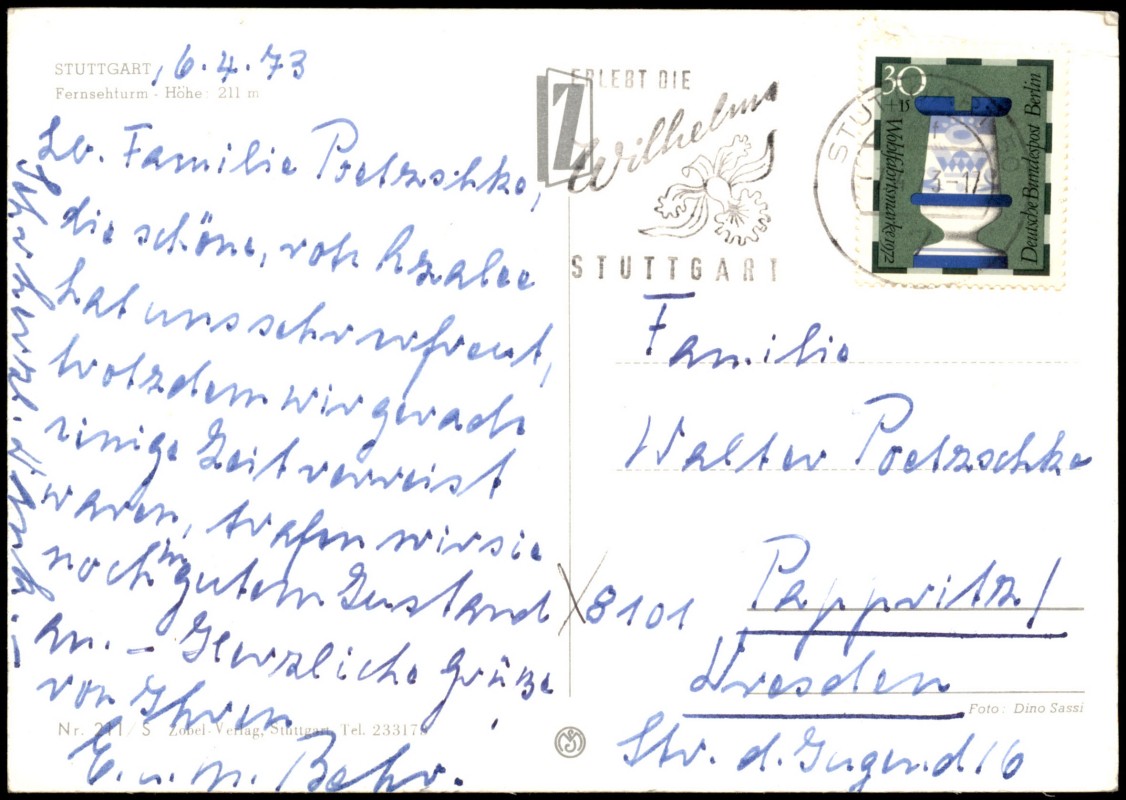 STUTTGART, 6.4.73
Fernsehturm - Höhe: 211 m
Lb. Familie Poetzschke,
die schöne, rote Azalee
hat uns sehr erfreut,
trotzdem wir gerade
einige Zeit verreist
waren, trafen wir sie
noch in gutem Zustand
an. – Herzliche Grüße
von Ihren
E. u. M. Behr.
Nr. 211/S Zobel-Verlag, Stuttgart, Tel. 23317
ERLEBT DIE
Wilhelma
STUTTGART
Z
30
+15
Wohlfahrtsmarke 1972
Deutsche Bundespost Berlin
Familie
Walter Poetzschke
8101 Pappritz /
Dresden
Str. d. Jugend 16
Foto: Dino Sassi